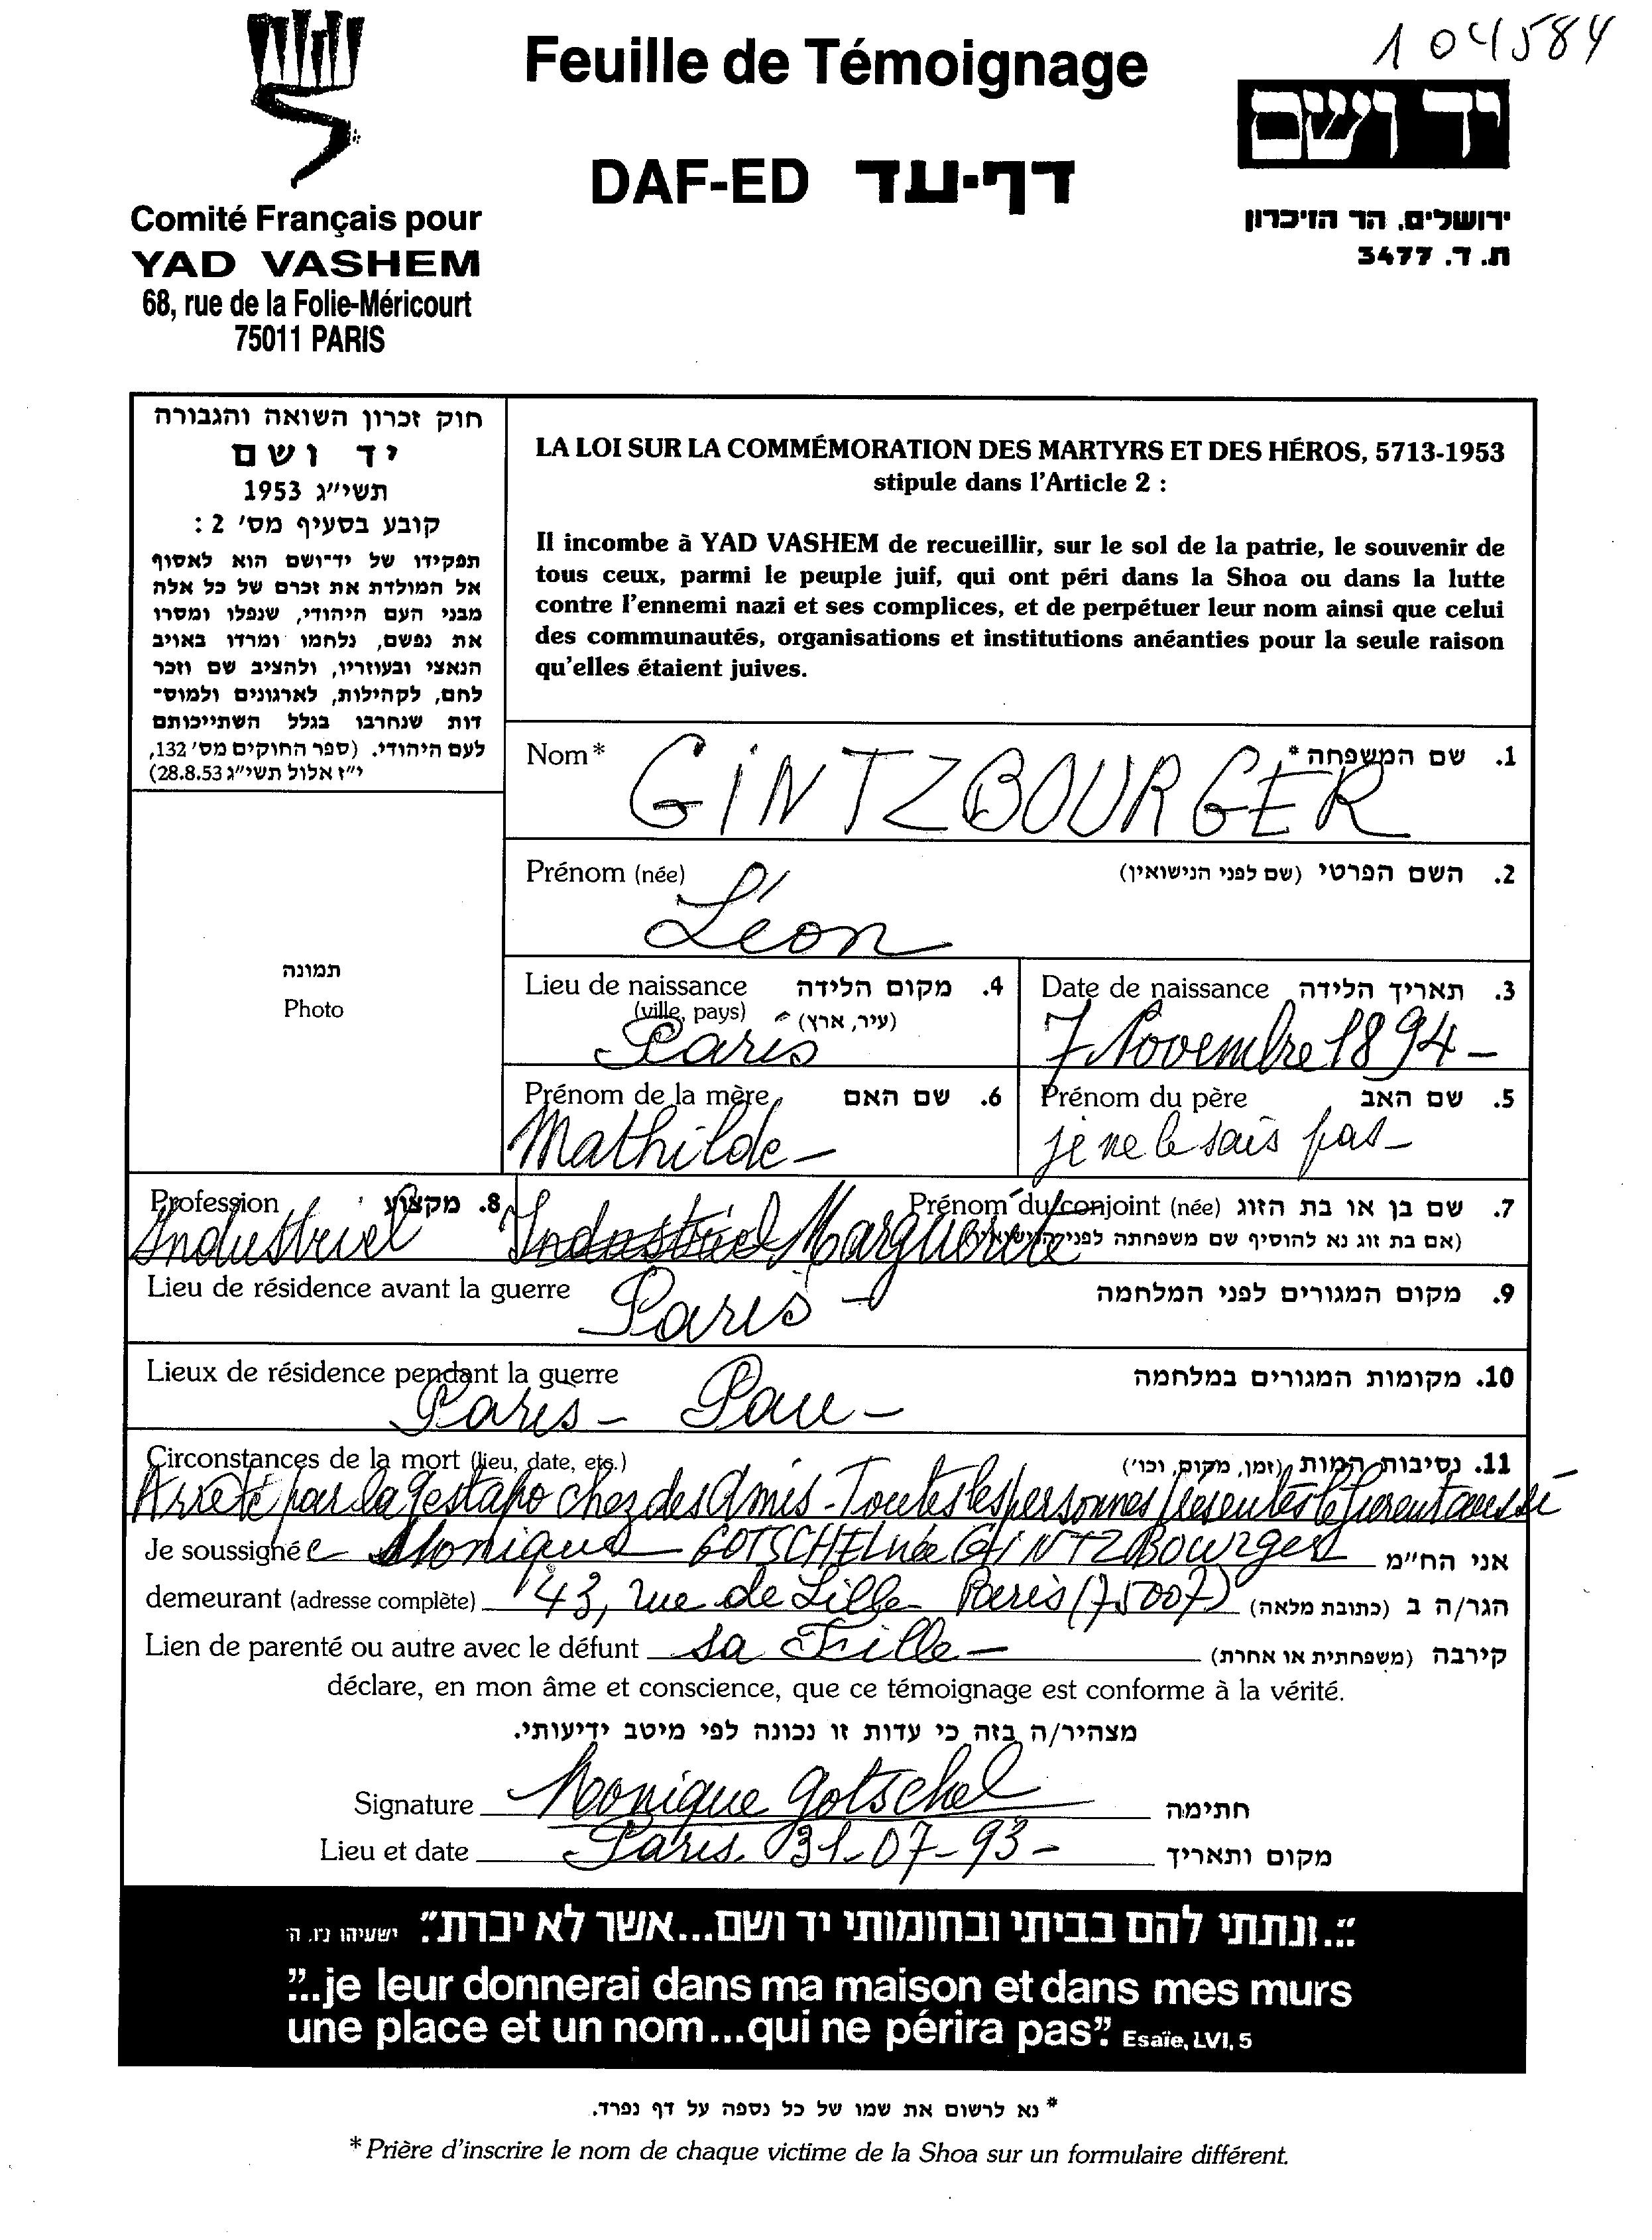 104584
Feuille de Témoignage
DAF-ED דף-עד
Comité Français pour
YAD VASHEM
68, rue de la Folie-Méricourt
75011 PARIS
יד ושם
ירושלים, הר הזיכרון
ת. ד. 3477
חוק זכרון השואה והגבורה
יד ושם
תשי״ג 1953
קובע בסעיף מס׳ 2 :
תפקידו של יד־ושם הוא לאסוף
אל המולדת את זכרם של כל אלה
מבני העם היהודי, שנפלו ומסרו
את נפשם, נלחמו ומרדו באויב
הנאצי ובעוזריו, ולהציב שם וזכר
להם, לקהילות, לארגונים ולמוס־
דות שנחרבו בגלל השתייכותם
לעם היהודי. (ספר החוקים מס׳ 132,
י״ז אלול תשי״ג 28.8.53)
LA LOI SUR LA COMMÉMORATION DES MARTYRS ET DES HÉROS, 5713-1953
stipule dans l'Article 2 :
Il incombe à YAD VASHEM de recueillir, sur le sol de la patrie, le souvenir de
tous ceux, parmi le peuple juif, qui ont péri dans la Shoa ou dans la lutte
contre l'ennemi nazi et ses complices, et de perpétuer leur nom ainsi que celui
des communautés, organisations et institutions anéanties pour la seule raison
qu'elles étaient juives.
תמונה
Photo
Nom* 1. שם המשפחה*
GINTZBOURGER
Prénom (née) 2. השם הפרטי (שם לפני הנישואין)
Léon
Lieu de naissance 4. מקום הלידה
(ville, pays) (עיר, ארץ)
Paris
Date de naissance 3. תאריך הלידה
7 Novembre 1894 -
Prénom de la mère 6. שם האם
Mathilde -
Prénom du père 5. שם האב
je ne le sais pas -
Profession 8. מקצוע
Industriel
Prénom du conjoint (née) 7. שם בן או בת הזוג
(אם בת זוג נא להוסיף שם משפחתה לפני הנישואין)
Industriel Marguerite
Lieu de résidence avant la guerre 9. מקום המגורים לפני המלחמה
Paris -
Lieux de résidence pendant la guerre 10. מקומות המגורים במלחמה
Paris - Pau -
Circonstances de la mort (lieu, date, etc.) 11. נסיבות המות (זמן, מקום, וכו׳)
Arrêté par la gestapo chez des Amis - Toutes les personnes présentes le furent aussi
Je soussigné e Monique GOTSCHEL née GINTZBOURGER אני הח״מ
demeurant (adresse complète) 43, rue de Lille - Paris (75007) הגר/ה ב (כתובת מלאה)
Lien de parenté ou autre avec le défunt sa Fille - קירבה (משפחתית או אחרת)
déclare, en mon âme et conscience, que ce témoignage est conforme à la vérité.
מצהיר/ה בזה כי עדות זו נכונה לפי מיטב ידיעותי.
Signature Monique Gotschel חתימה
Lieu et date Paris. 31-07-93 - מקום ותאריך
"...ונתתי להם בביתי ובחומותי יד ושם...אשר לא יכרת" ישעיהו נ״ו, ה׳
"...je leur donnerai dans ma maison et dans mes murs
une place et un nom...qui ne périra pas" Esaïe, LVI, 5
* נא לרשום את שמו של כל נספה על דף נפרד.
* Prière d'inscrire le nom de chaque victime de la Shoa sur un formulaire différent.